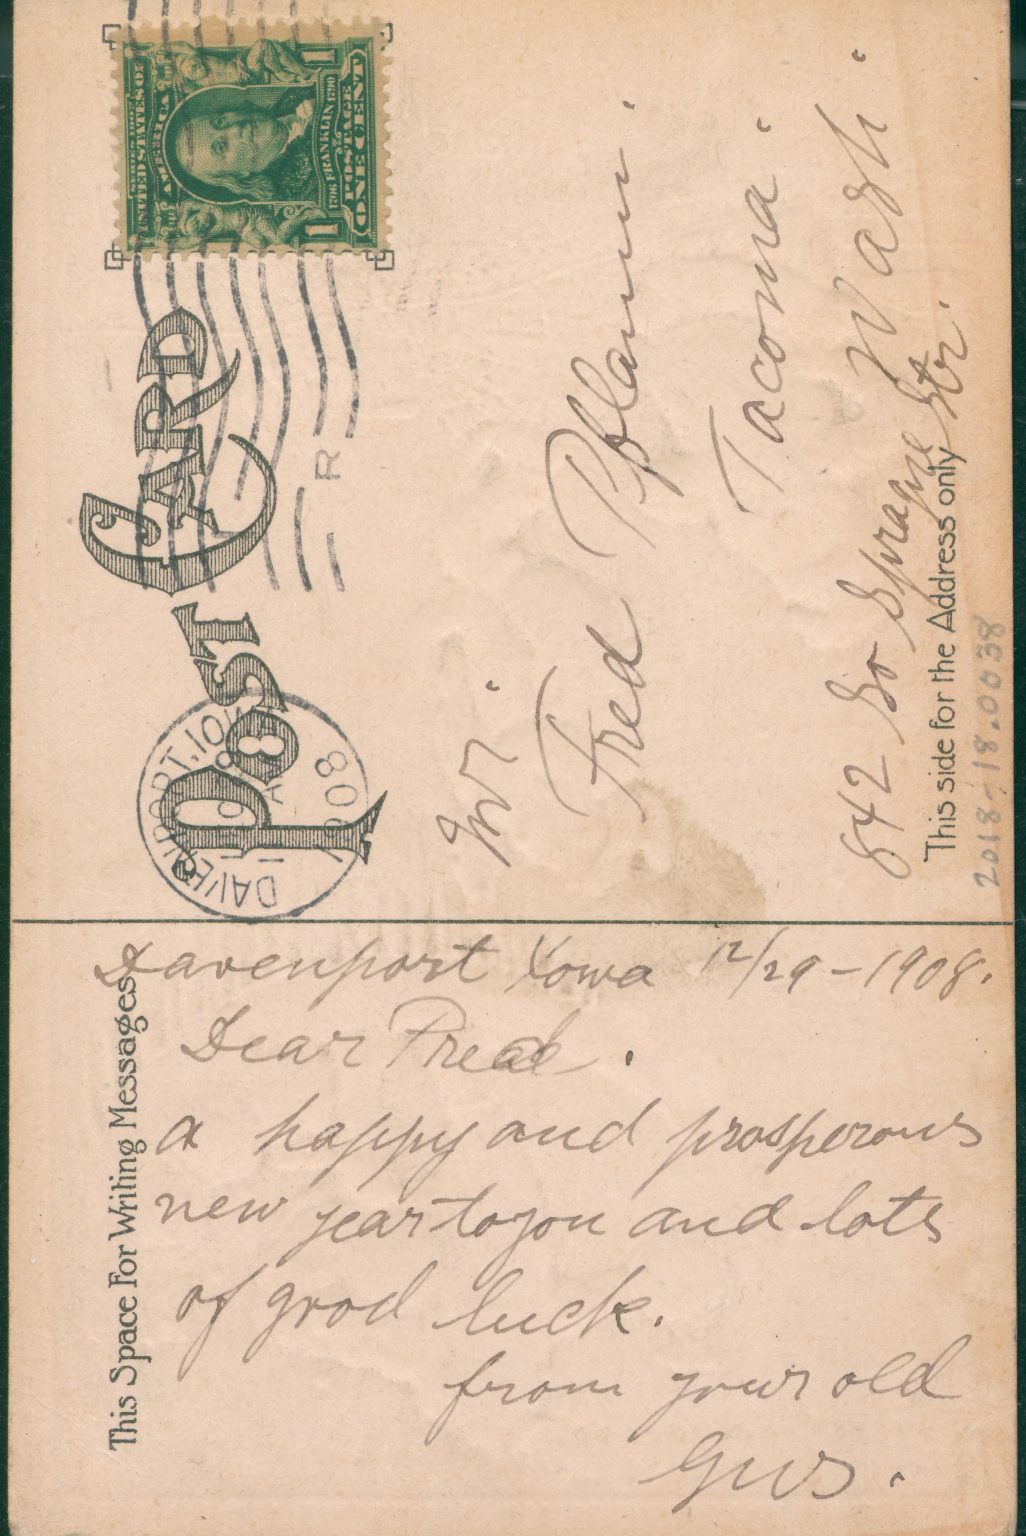 SERIES 1902
UNITED STATES OF
AMERICA
1706 FRANKLIN 1790
POSTAGE
ONE CENT
1 1
POST CARD
DAVENPORT, IOWA
1908
R
Mr.
Fred
Tacoma.
Wash.
842 So Sprague Str.
This side for the Address only
2018-18.0038
This Space For Writing Messages
Davenport Iowa 12/29-1908.
Dear Fred.
a happy and prosperous
new year to you and lots
of good luck.
from your old
Gus.